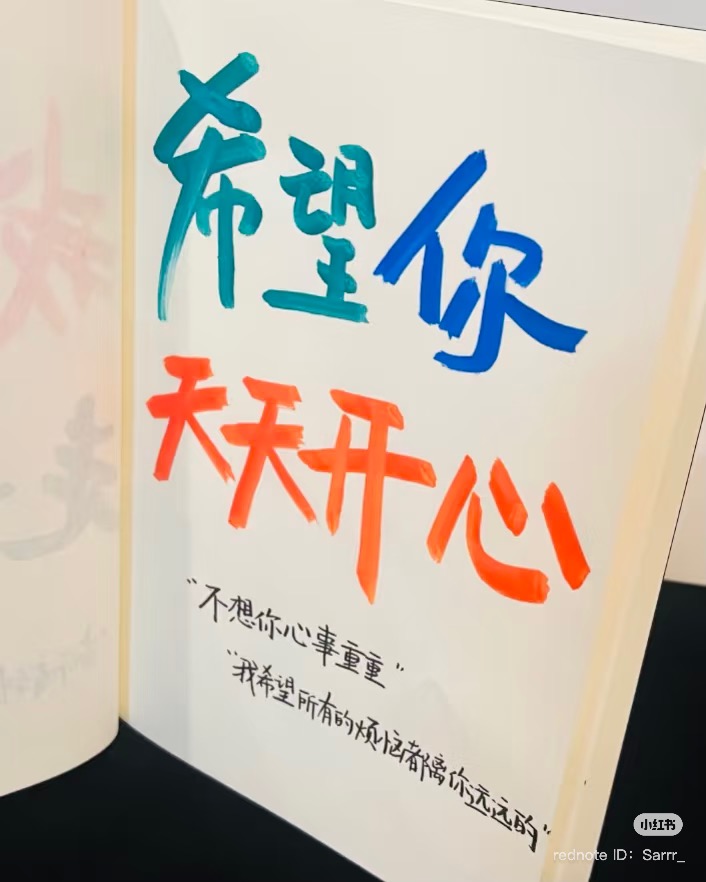 希望你
天天开心
"不想你心事重重"
"我希望所有的烦恼都离你远远的"
小红书
rednote ID: Sarrr_